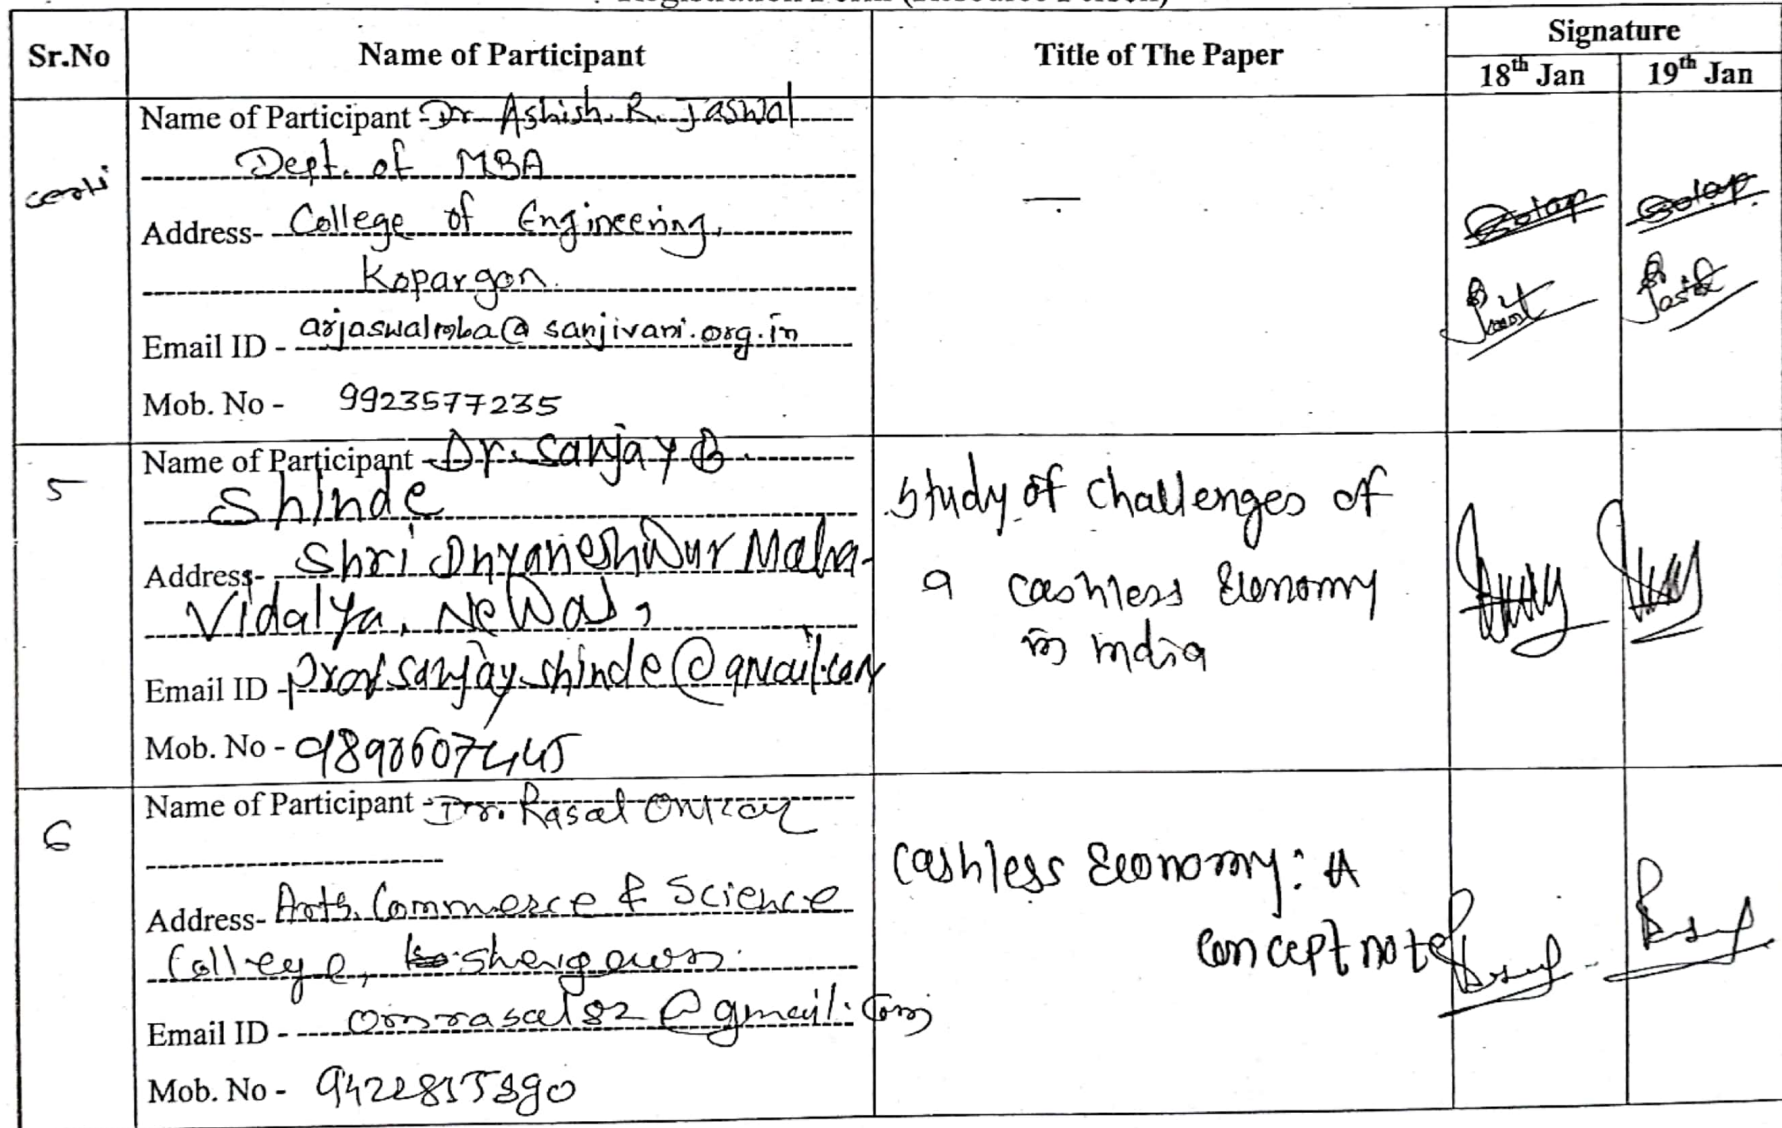 Registration Form (Resource Person)
Sr.No Name of Participant Title of The Paper Signature
18th Jan 19th Jan
Name of Participant - Dr. Ashish. R. Jaswal
Dept. of MBA
Address- College of Engineering,
Kopargon.
Email ID - arjaswalmba@sanjivani.org.in
Mob. No - 9923577235
5
Name of Participant - Dr. Sanjay B.
Shinde
Address- Shri Dnyaneshwur Maha-
Vidalya, Newas,
Email ID - prof.sanjay.shinde@gmail.com
Mob. No -
Study of challenges of
a cashless Economy
in india
6
Name of Participant - Dr. Rasal Omkar
Address- Arts, Commerce & Science
College, shevgaon.
Email ID - omrasal82@gmail.com
Mob. No - 9422815890
Cashless Economy: A
concept note